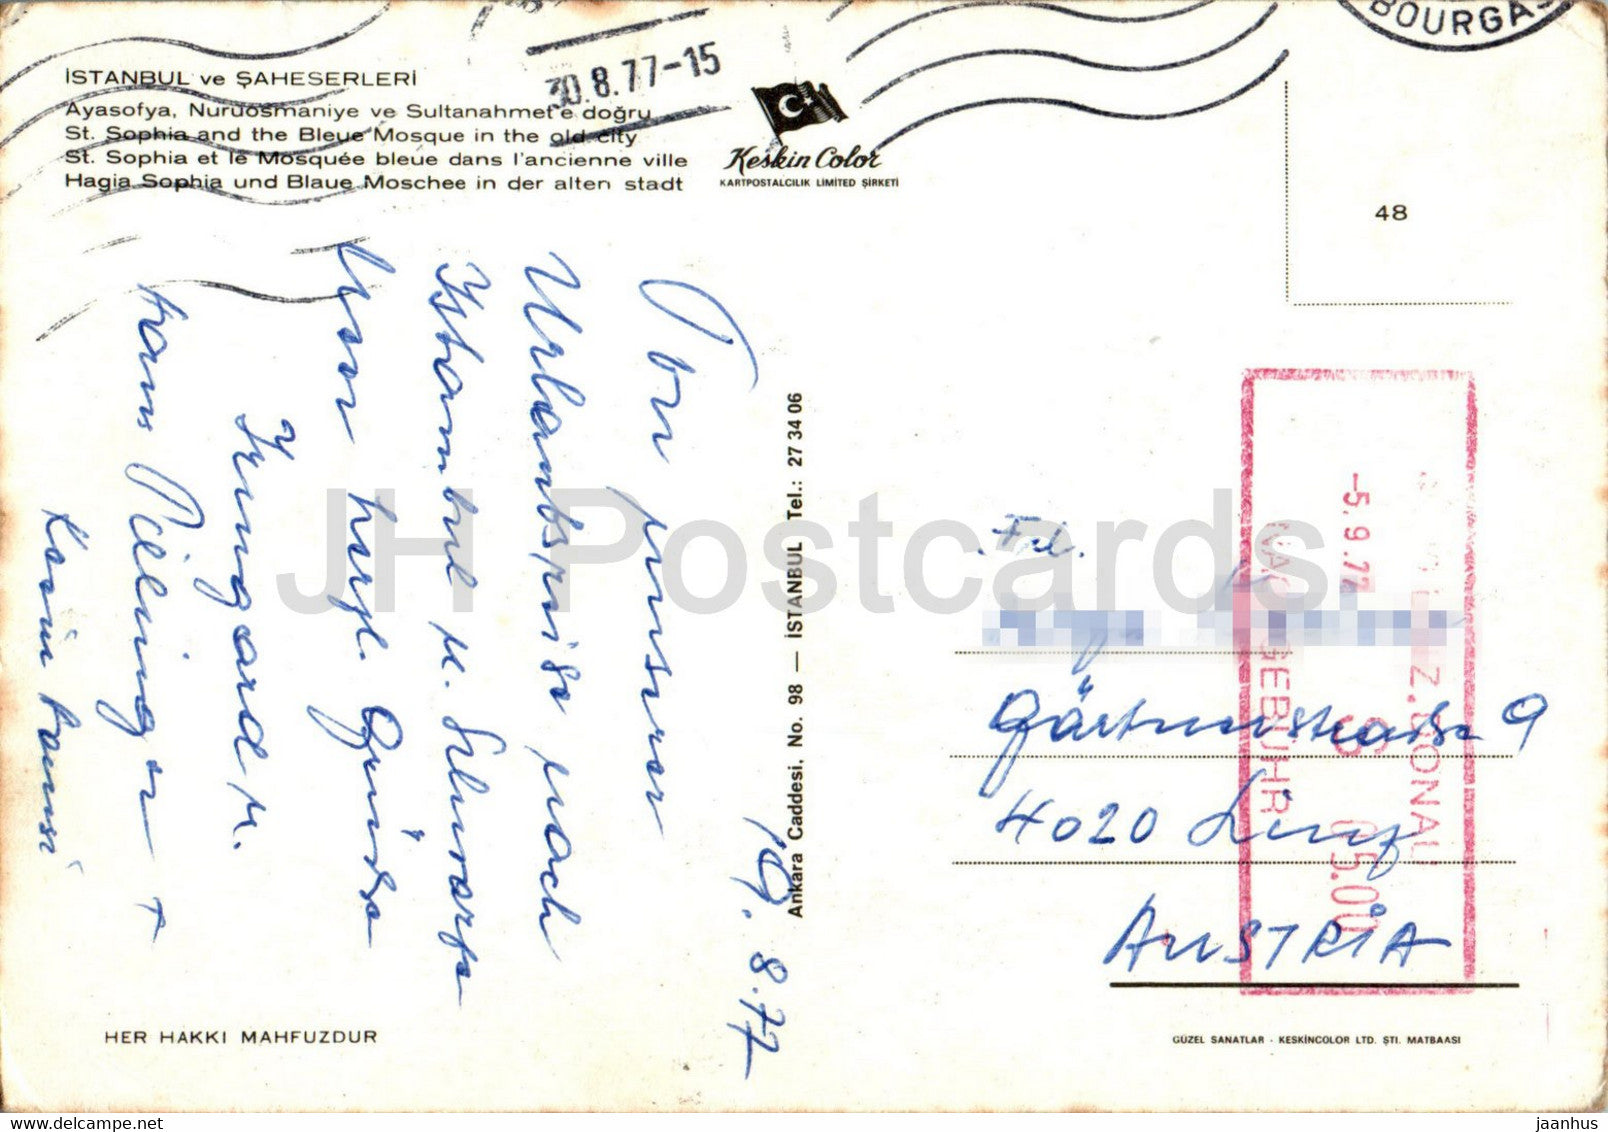 BOURGAS
30.8.77-15
İSTANBUL ve ŞAHESERLERİ
Ayasofya, Nuruosmaniye ve Sultanahmet'e doğru
St. Sophia and the Bleue Mosque in the old city
St. Sophia et le Mosquée bleue dans l'ancienne ville
Hagia Sophia und Blaue Moschee in der alten stadt
Keskin Color
KARTPOSTALCILIK LIMITED ŞİRKETİ
48
19.8.77
Von unserer
Urlaubsreise nach
Istambul u. Schwarze
Meer herzl. Grüße
Irmgard u.
Hans +
Karin
Ankara Caddesi, No. 98 — İSTANBUL Tel.: 27 34 06
JH Postcards
Gärtnerstraße 9
4020 Linz
AUSTRIA
-5.9.77
NACHGEBÜHR
S 05.00
HER HAKKI MAHFUZDUR
GÜZEL SANATLAR - KESKİNCOLOR LTD. ŞTİ. MATBAASI
jaanhus
https://www.delcampe.net